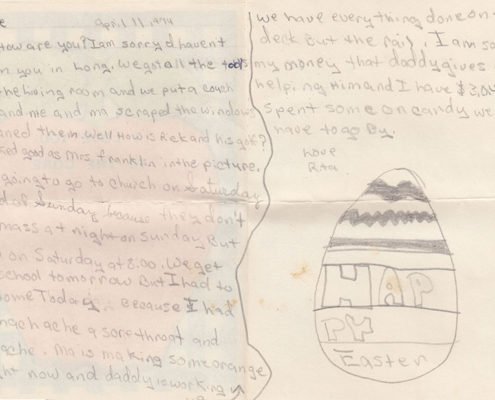 e April 11, 1974
How are you? I am sorry I haven't
n you in Long. We got all the tools
the living room and we put a couch
and me and ma scraped the windows
aned them. Well How is Rek and his golf?
ked good as Mrs. Franklin in the picture.
going to go to church on Saturday
d of Sunday because they don't
mass at night on Sunday But
on Saturday at 8:00. We get
school tomorrow But I had to
ome Today. Because I had
mach ache a sore throat and
ache. Ma is making some orange
ht now and daddy is working
we have everything done on
deck But the rail. I am so
my money that daddy gives
helping Him and I have $3.04
spent some on candy we
have to go By.
Love
Rita
HAP
PY
Easter